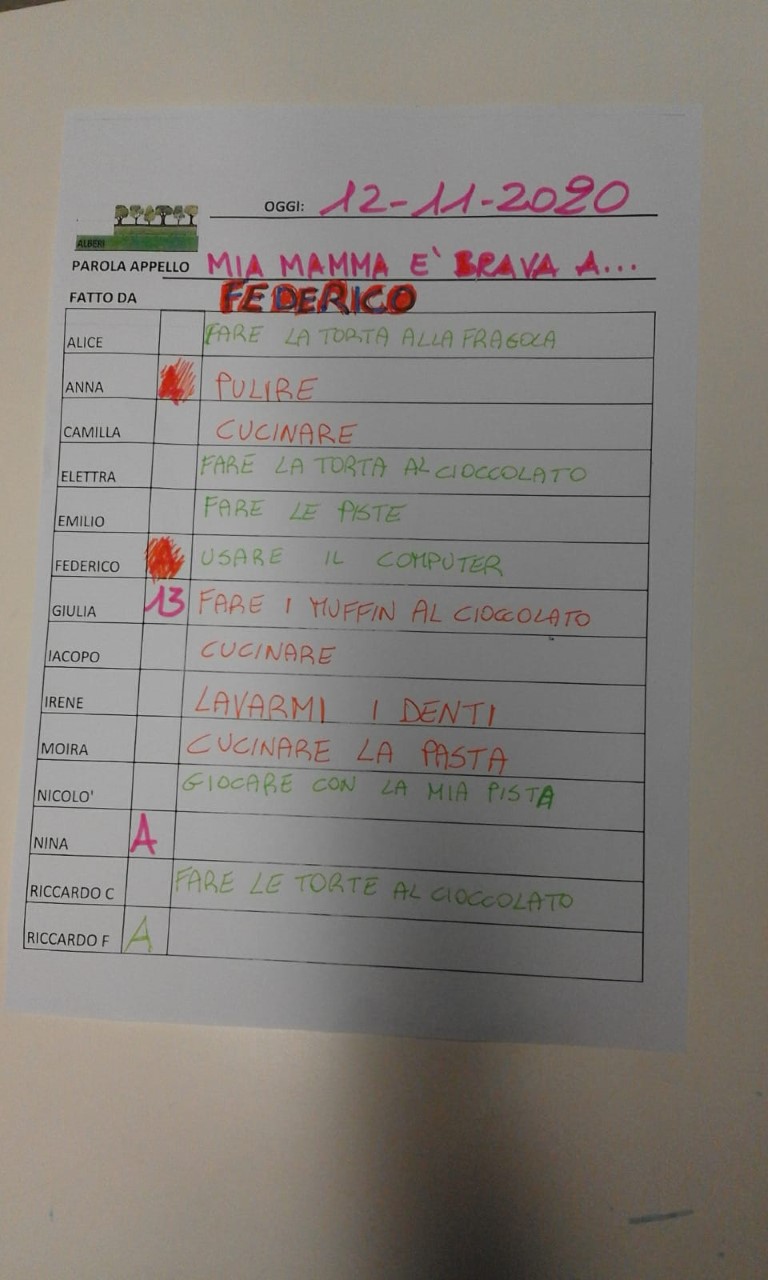 OGGI: 12-11-2020
ALBERI
PAROLA APPELLO MIA MAMMA E' BRAVA A...
FATTO DA FEDERICO
ALICE FARE LA TORTA ALLA FRAGOLA
ANNA PULIRE
CAMILLA CUCINARE
ELETTRA FARE LA TORTA AL CIOCCOLATO
EMILIO FARE LE PISTE
FEDERICO USARE IL COMPUTER
GIULIA 13 FARE I MUFFIN AL CIOCCOLATO
IACOPO CUCINARE
IRENE LAVARMI I DENTI
MOIRA CUCINARE LA PASTA
NICOLO' GIOCARE CON LA MIA PISTA
NINA A
RICCARDO C FARE LE TORTE AL CIOCCOLATO
RICCARDO F A